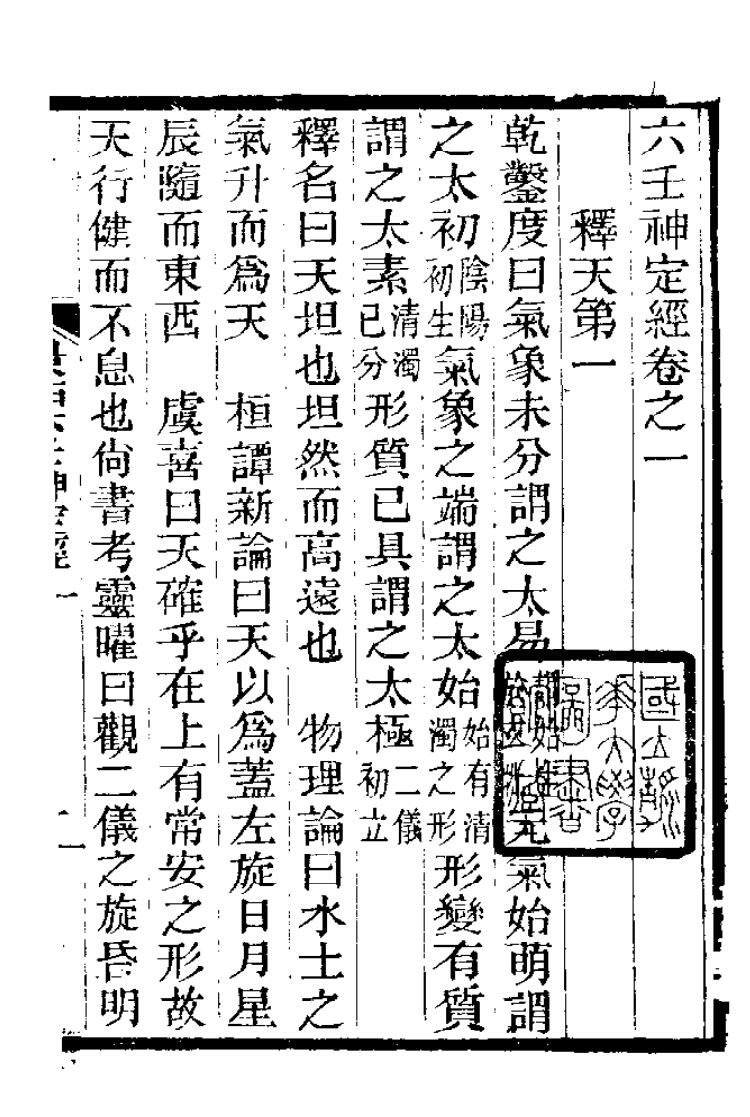 六壬神定經卷之一
釋天第一
乾鑿度曰氣象未分謂之太易元氣始萌謂
之太初陰陽初生氣象之端謂之太始始有清濁之形形變有質
謂之太素清濁已分形質已具謂之太極二儀初立
釋名曰天坦也坦然而高遠也　物理論曰水土之
氣升而爲天　桓譚新論曰天以爲蓋左旋日月星
辰隨而東西　虞喜曰天確乎在上有常安之形故
天行健而不息也尙書考靈曜曰觀二儀之旋昏明
神定經一
二
國立清華大學圖書館